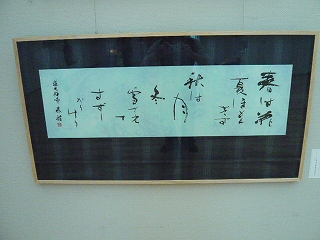 春は花
夏ほとゝぎす
秋は月
冬
雪さえて
すずし
かりけり
道元禅師